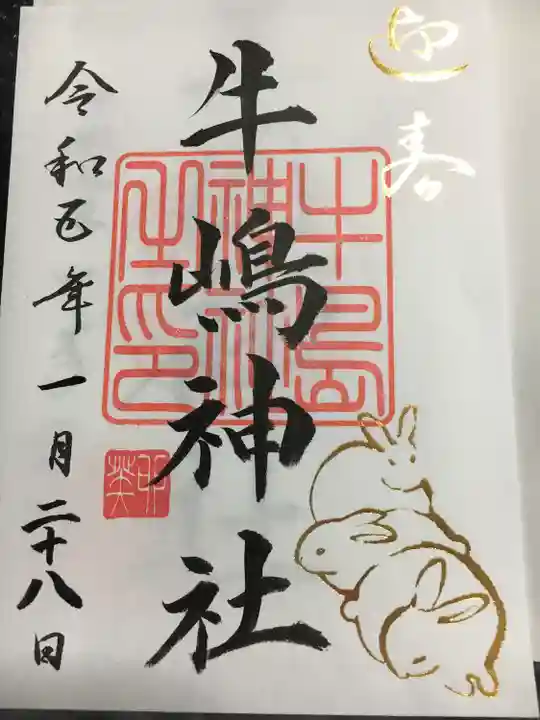 迎春
牛嶋神社
牛島
神社
之印
令和五年一月二十八日